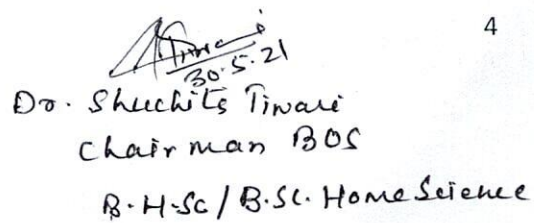 4
Tiwari
30.5.21
Dr. Shuchita Tiwari
Chairman BOS
B.H.Sc / B.Sc. Home Science